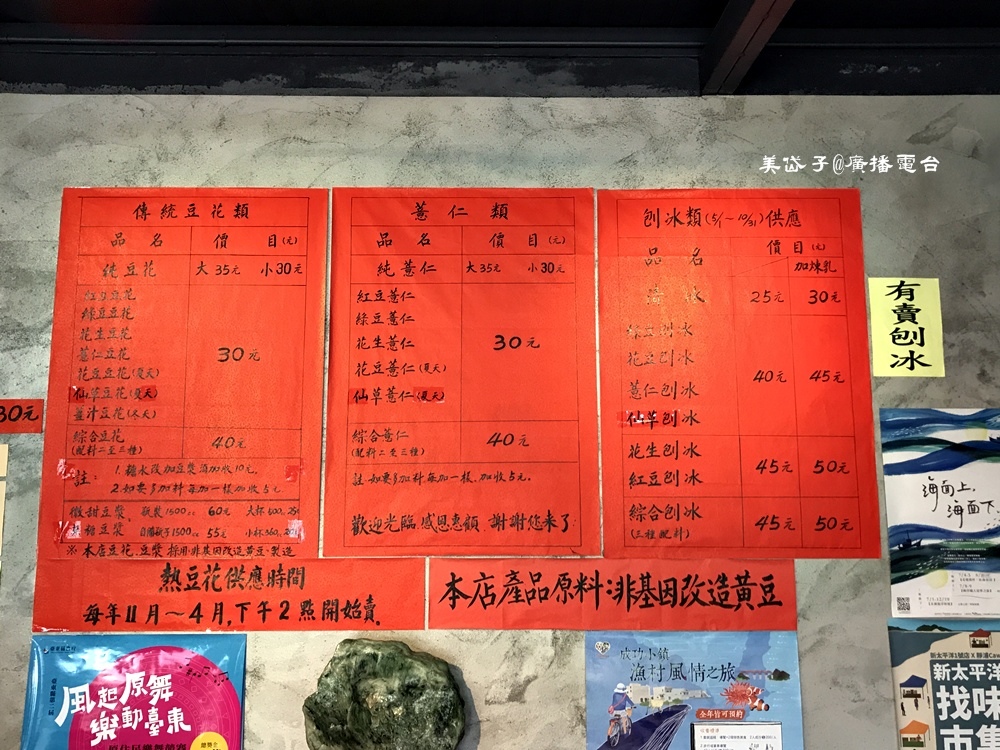 美岱子@廣播電台
傳統豆花類
品名 價目(元)
純豆花 大35元 小30元
紅豆豆花
綠豆豆花
花生豆花
薏仁豆花
花豆豆花(夏天)
仙草豆花(夏天)
薑汁豆花(冬天)
30元
綜合豆花
(配料二至三種)
40元
註: 1. 糖水改加豆漿須加收10元.
2. 如要多加料每加一樣加收5元
微甜豆漿、瓶裝1500cc 60元 大杯500cc 25
糖豆漿 自備瓶子1500cc 55元 小杯360cc 20
※本店豆花.豆漿採用非基因改造黃豆製造
薏仁類
品名 價目(元)
純薏仁 大35元 小30元
紅豆薏仁
綠豆薏仁
花生薏仁
花豆薏仁(夏天)
仙草薏仁(夏天)
30元
綜合薏仁
(配料二至三種)
40元
註.如要多加料每加一樣.加收5元.
歡迎光臨 感恩惠顧 謝謝您來了
刨冰類(5/1~10/31)供應
品名 價目(元)
加煉乳
清冰 25元 30元
綠豆刨冰
花豆刨冰
薏仁刨冰
仙草刨冰
40元 45元
花生刨冰
紅豆刨冰
45元 50元
綜合刨冰
(三種配料)
45元 50元
有賣刨冰
30元
熱豆花供應時間
每年11月~4月,下午2點開始賣.
本店產品原料:非基因改造黃豆
風起原舞
樂動臺東
成功小鎮
漁村風情之旅
全年皆可預約
海面上,
海面下
新太平洋1號店 X
新太平洋
找味
市集